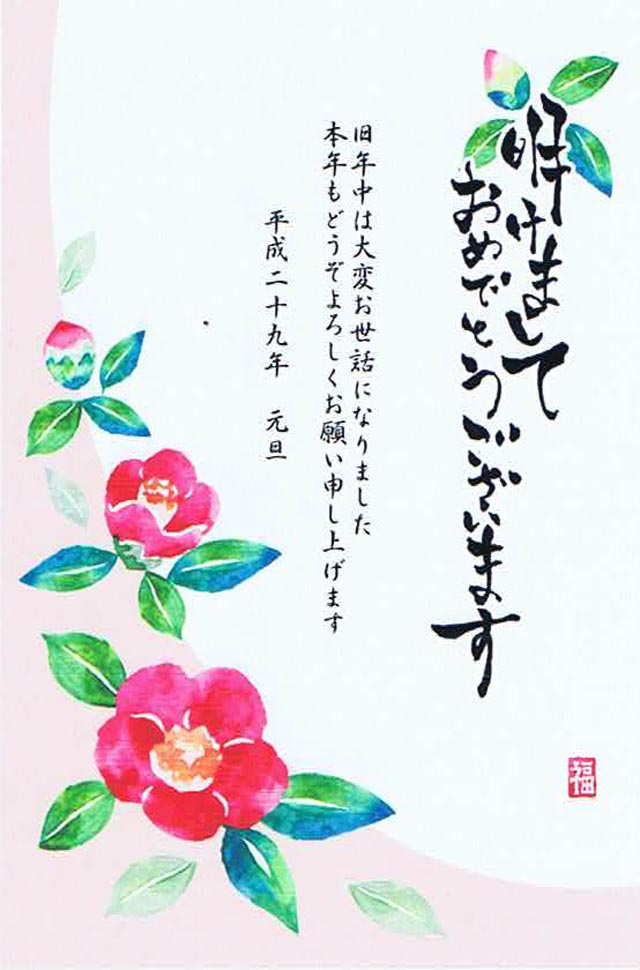 明けまして
おめでとうございます
旧年中は大変お世話になりました
本年もどうぞよろしくお願い申し上げます
平成二十九年 元旦
福